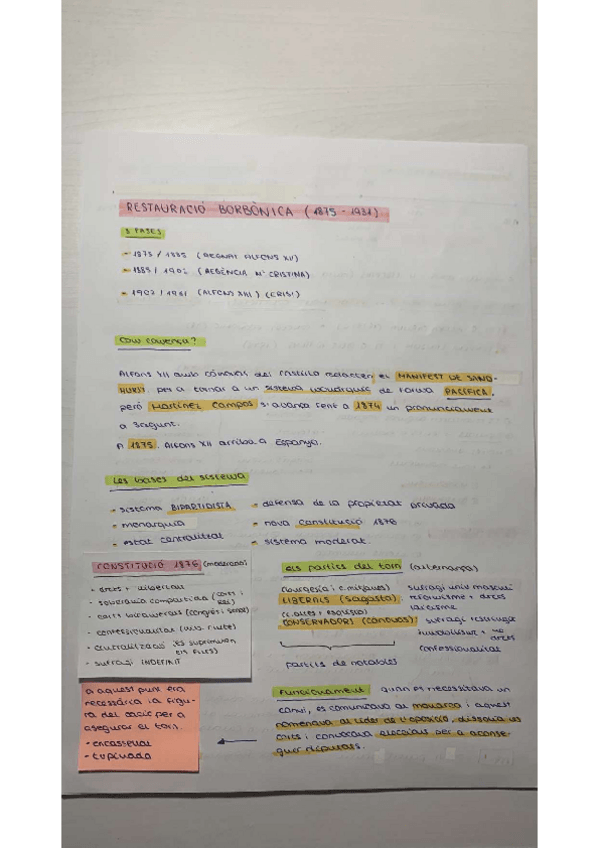 RESTAURACIÓ BORBÒNICA (1875 - 1931)
3 FASES
- 1875 / 1885 (REGNAT ALFONS XII)
- 1885 / 1902 (REGÈNCIA Mª CRISTINA)
- 1902 / 1931 (ALFONS XIII) (CRISI)
Com comença?
Alfons XII amb Cánovas del Castillo redacten el MANIFEST DE SAND-
HURST, per a tornar a un sistema monàrquic de forma PACÍFICA,
però Martínez Campos s'avança fent a 1874 un pronunciament
a Sagunt.
A 1875 Alfons XII arriba a Espanya.
Les bases del sistema
- sistema BIPARTIDISTA
- monarquia
- estat centralitzat
- defensa de la propietat privada
- nova Constitució 1876
- sistema moderat
CONSTITUCIÓ 1876 (moderada)
- drets i llibertats
- sobirania compartida (corts i rei)
- corts bicamerals (congrés i senat)
- confessionalitat
- centralització (es suprimeixen els furs)
- sufragi INDEFINIT
Els partits del torn (alternança)
(burgesia i c. mitjanes)
LIBERALS (Sagasta): sufragi univ. masculí
reformisme + drets
laïcisme
(c. altes i
CONSERVADORS (Cánovas): sufragi restringit
immobilisme + no drets
confessionalitat
partits de notables
Funcionament quan es necessitava un
canvi, es comunicava al monarca i aquest
nomenava al líder de l'oposició, dissolia les
corts i convocava eleccions per a aconse-
guir diputats.
A aquest punt era
necessària la figu-
ra del cacic per a
assegurar el torn.
- encasellat
- tupinada